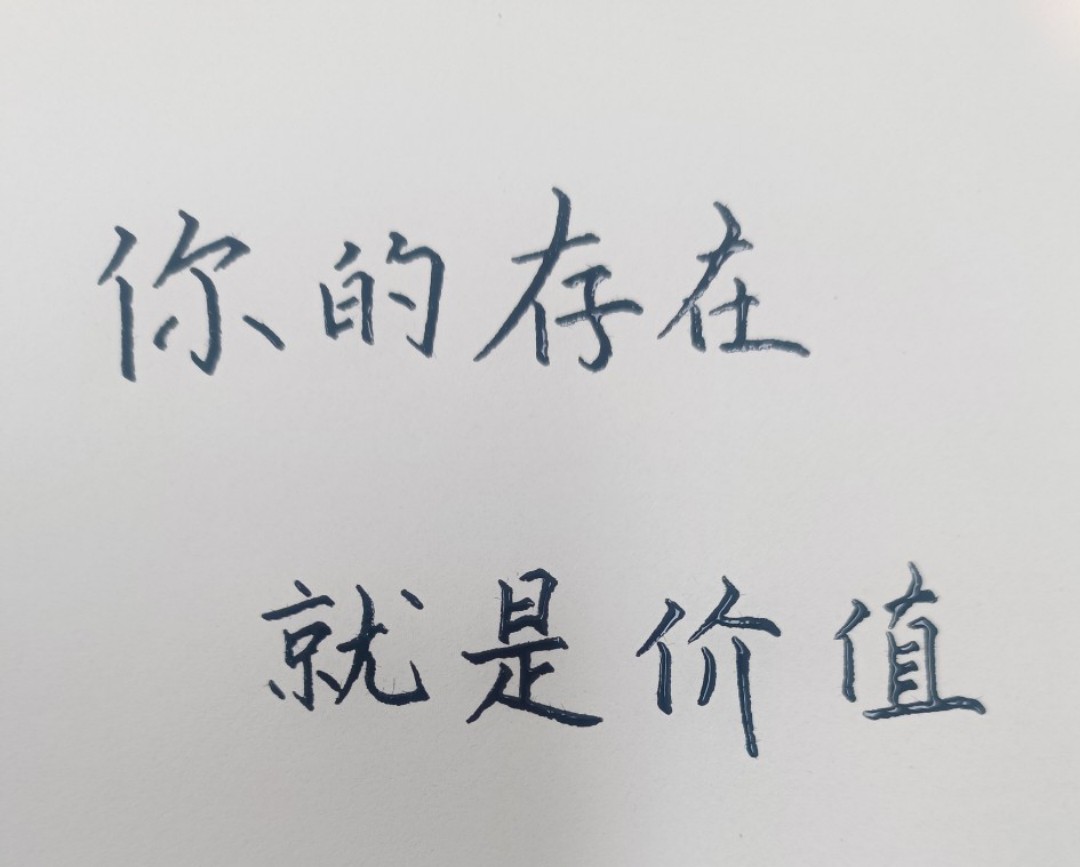 你的存在
就是价值